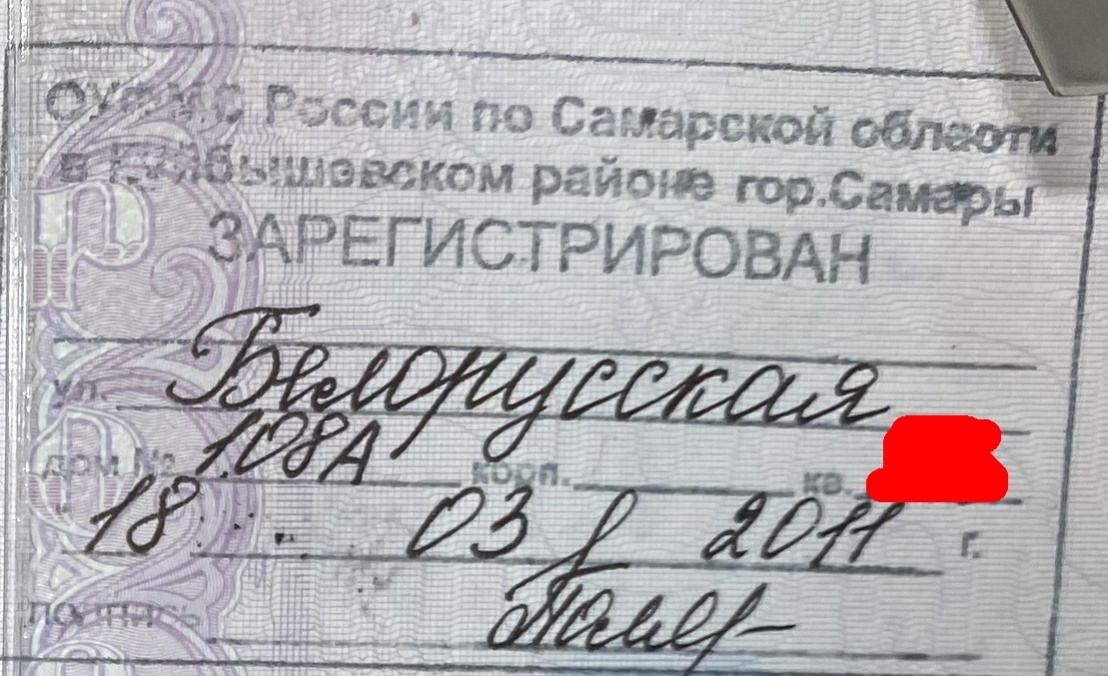 ОУФМС России по Самарской области
в Куйбышевском районе гор.Самары
ЗАРЕГИСТРИРОВАН
ул. Белорусская
дом № 108А корп. кв.
18 03 2011 г.
подпись